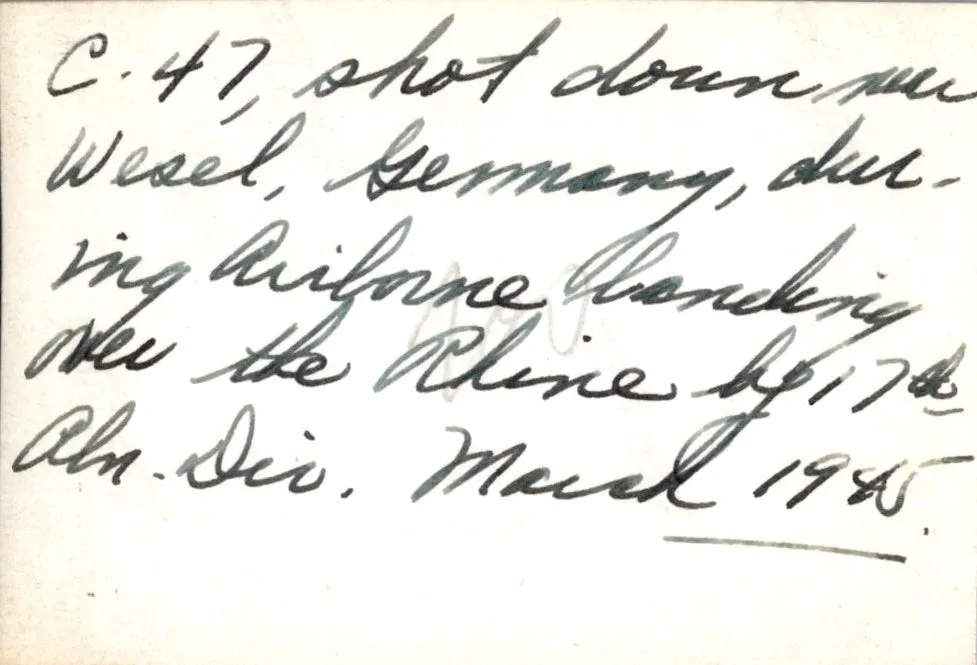 C-47, shot down near
Wesel, Germany, dur-
ing Airborne landing
over the Rhine by 17th
Abn. Div. March 1945.